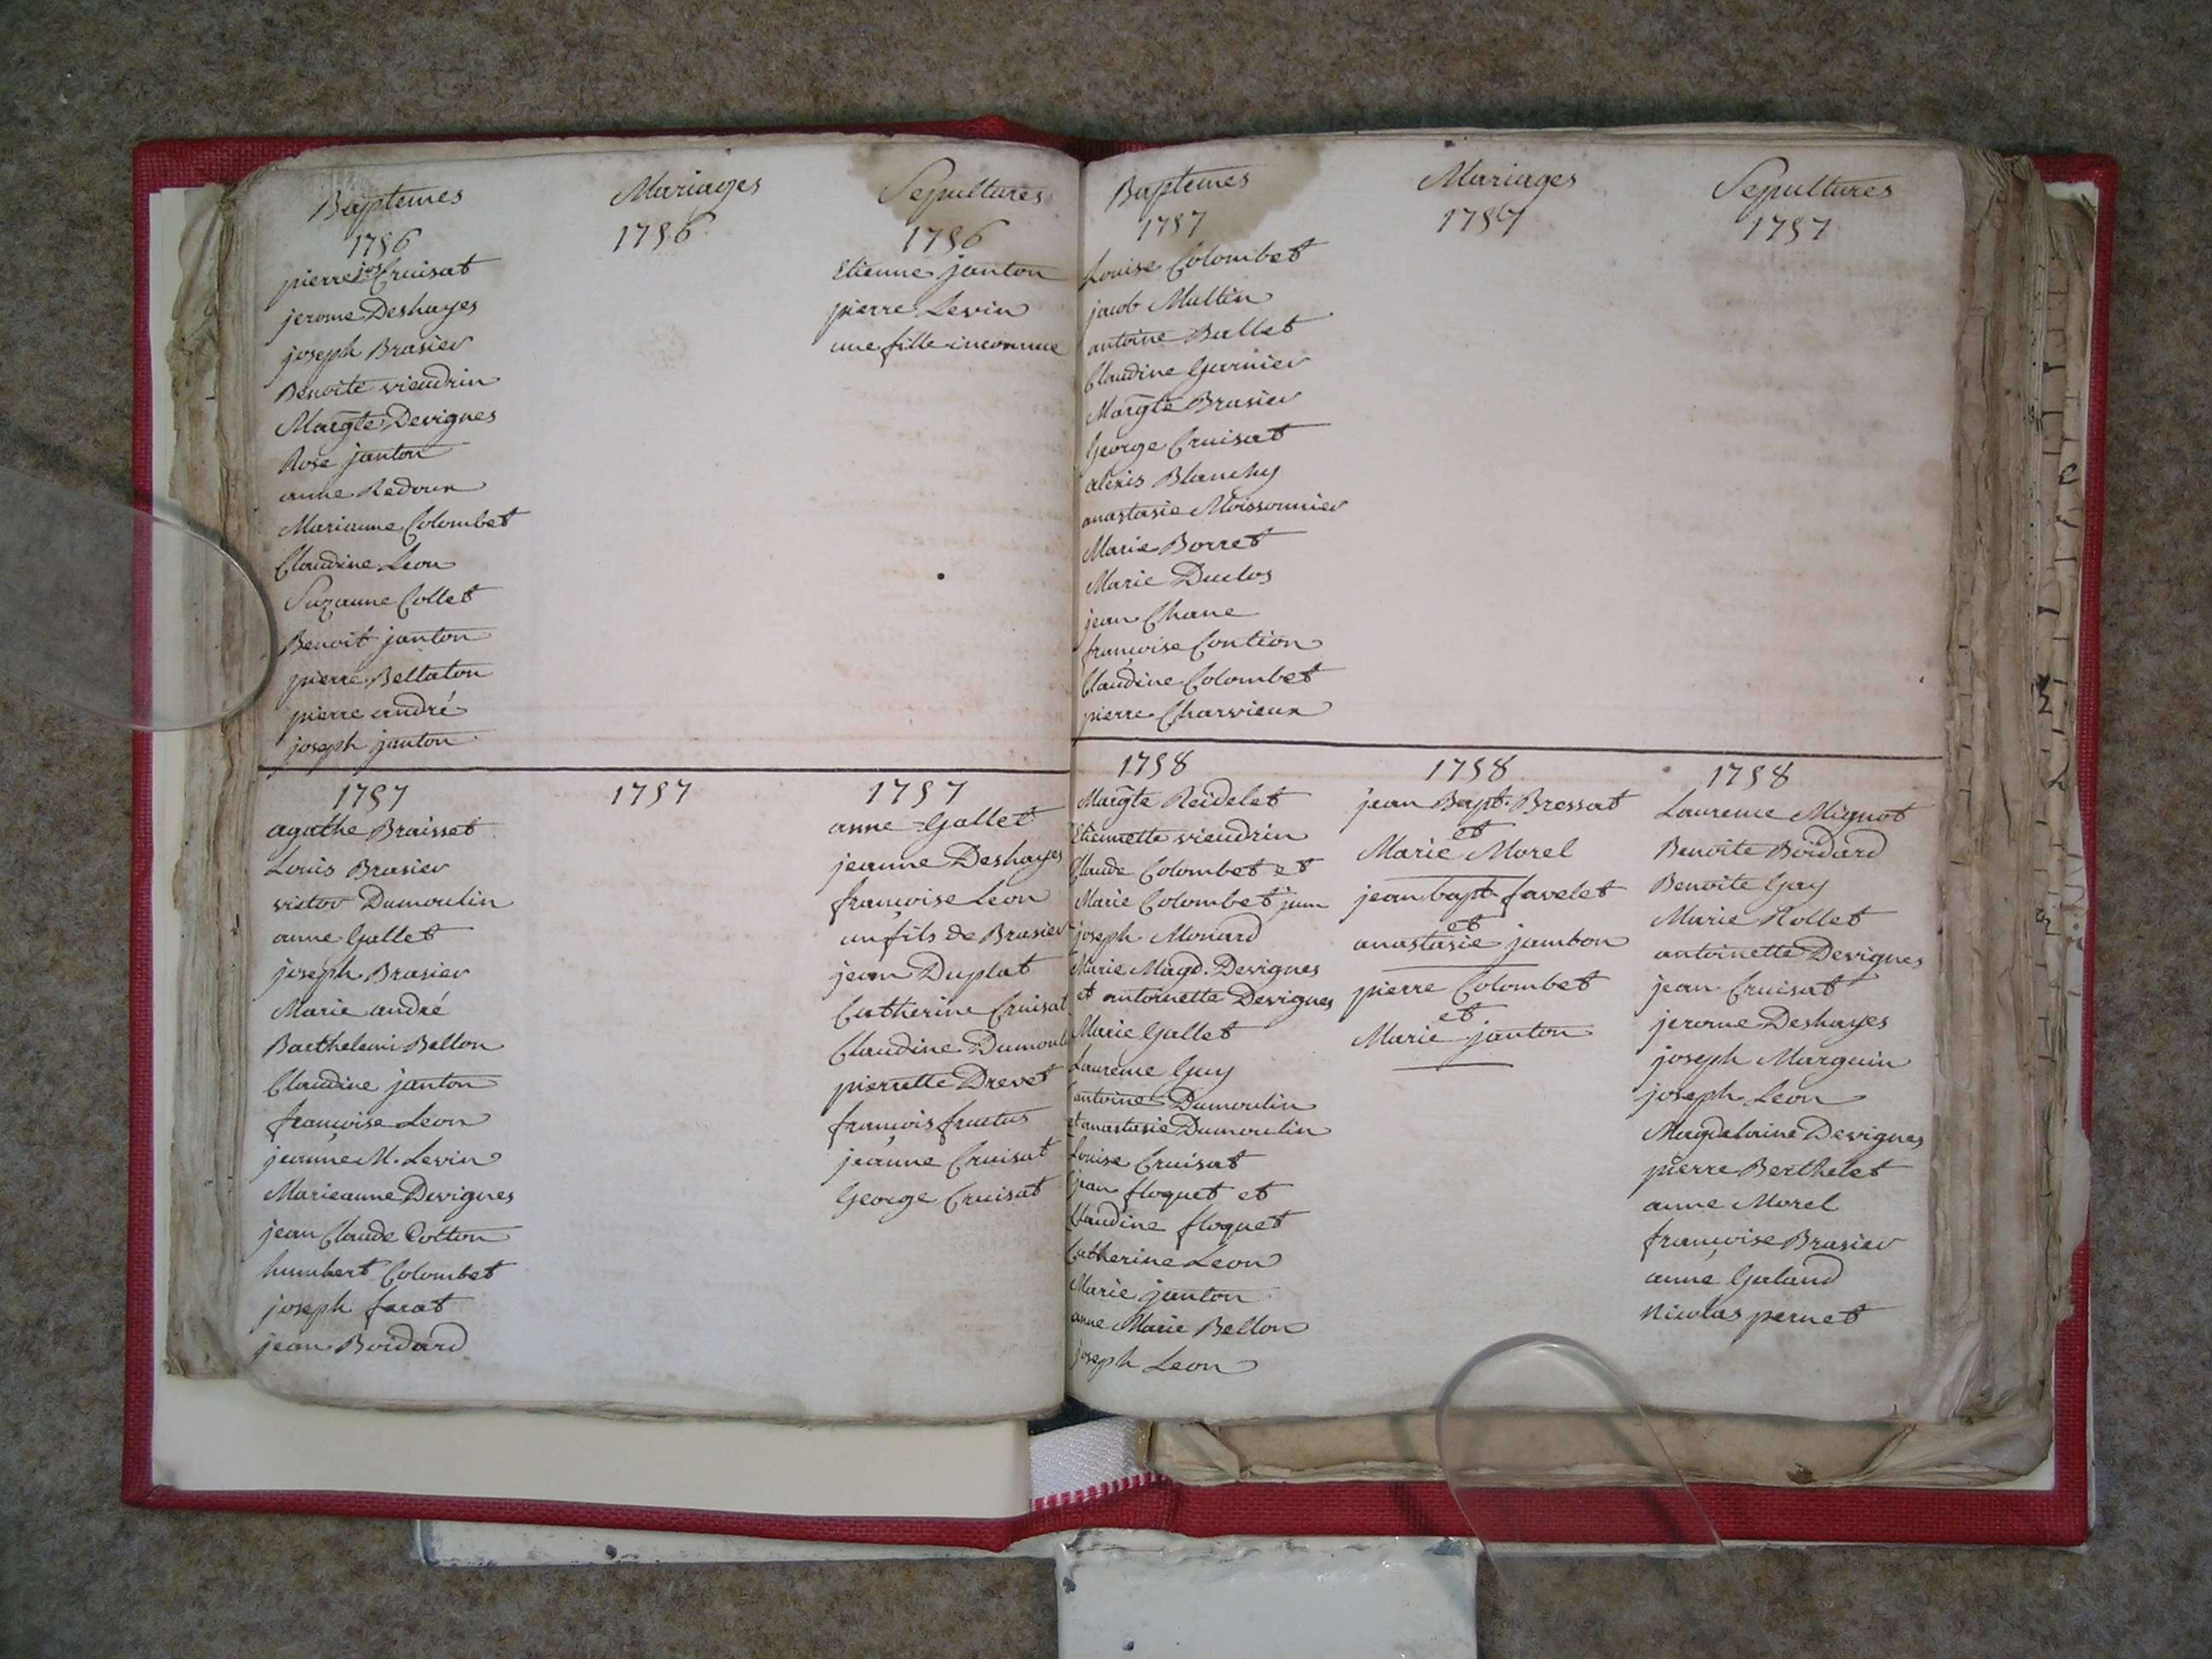 Baptemes
1756
pierre jos Cruisat
jerome Deshayes
joseph Brasier
Benoite vieudrin
Margte Devignes
Rose janton
anne Redoux
Marianne Colombet
Claudine Leon
Suzanne Collet
Benoit janton
pierre Bellaton
pierre andré
joseph janton
Mariages
1756
Sepultures
1756
Etienne janton
pierre Levin
une fille inconnue
1757
agathe Braisset
Louis Brasier
victor Dumoulin
anne Gallet
joseph Brasier
Marie andré
Barthelemi Bellon
Claudine janton
françoise Leon
jeanne M. Levin
Marieanne Devignes
jean Claude Cotton
humbert Colombet
joseph farat
jean Boidard
1757
1757
anne Gallet
jeanne Deshayes
françoise Leon
un fils de Brasier
jean Duplat
Catherine Cruisat
Claudine Dumoul
pierrette Drevet
françois fructus
jeanne Cruisat
George Cruisat
Baptemes
1757
Louise Colombet
jacob Multin
antoine Ballet
Claudine Garnier
Margte Brasier
George Cruisat
alexis Blanchy
anastasie Moissonnier
Marie Borret
Marie Duclos
jean Chane
françoise Contion
Claudine Colombet
pierre Charvieux
Mariages
1757
Sepultures
1757
1758
Margte Reidelet
Etiennette vieudrin
Claude Colombet et
Marie Colombet jum
joseph Monard
Marie Magd. Devignes
et antoinette Devignes
Marie Gallet
Laurence Guy
antoine Dumoulin
et anastasie Dumoulin
Louise Cruisat
jean floquet et
Claudine floquet
Catherine Leon
Marie janton
anne Marie Bellon
joseph Leon
1758
jean Bapt. Bressat
et
Marie Morel
jean bapt favelet
et
anastasie jambon
pierre Colombet
et
Marie janton
1758
Laurence Mignot
Benoite Boidard
Benoite Gay
Marie Rollet
antoinette Devignes
jean Cruisat
jerome Deshayes
joseph Marguin
joseph Leon
Magdelaine Devignes
pierre Berthelet
anne Morel
françoise Brasier
anne Galand
Nicolas pernet